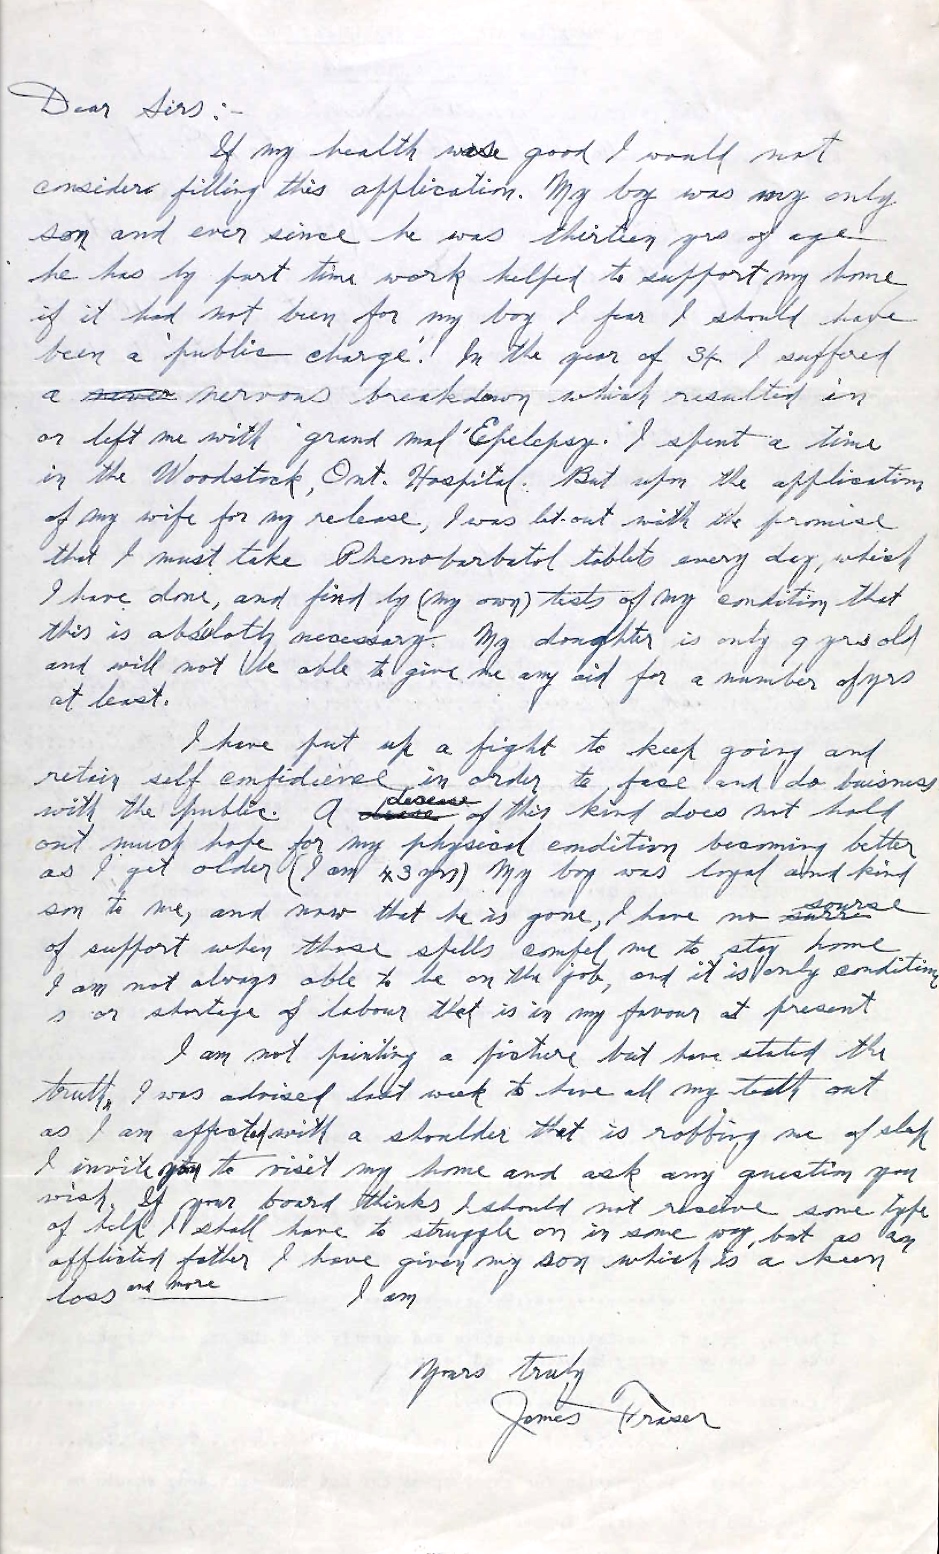 Dear Sirs:-
If my health were good I would not
consider filling this application. My boy was my only
son and ever since he was thirteen yrs of age
he has by part time work helped to support my home
if it had not been for my boy I fear I should have
been a 'public charge'. In the year of 34 I suffered
a nervous breakdown which resulted in
or left me with 'grand mal' Epelepsy. I spent a time
in the Woodstock, Ont. Hospital. But upon the application
of my wife for my release, I was let out with the promise
that I must take Phenobarbatol tablets every day, which
I have done, and find by (my own) tests of my condition that
this is absolotly necessary. My daughter is only 9 yrs old
and will not be able to give me any aid for a number of yrs
at least.
I have put up a fight to keep going and
retain self confidience in order to face and do buisness
with the public. A desease of this kind does not hold
out much hope for my physical condition becoming better
as I get older (I am 43 yrs) My boy was loyal and kind
son to me, and now that he is gone, I have no sourse
of support when those spells compel me to stay home
I am not always able to be on the job, and it is only condition
s or shortage of labour that is in my favour at present
I am not painting a picture but have stated the
truth. I was advised last week to have all my teeth out
as I am affected with a shoulder that is robbing me of sleep
I invite you to visit my home and ask any question you
wish. If your board thinks I should not receive some type
of help I shall have to struggle on in some way, but as an
afflicted father I have given my son which is a keen
loss and more I am
Yours truly
James Fraser